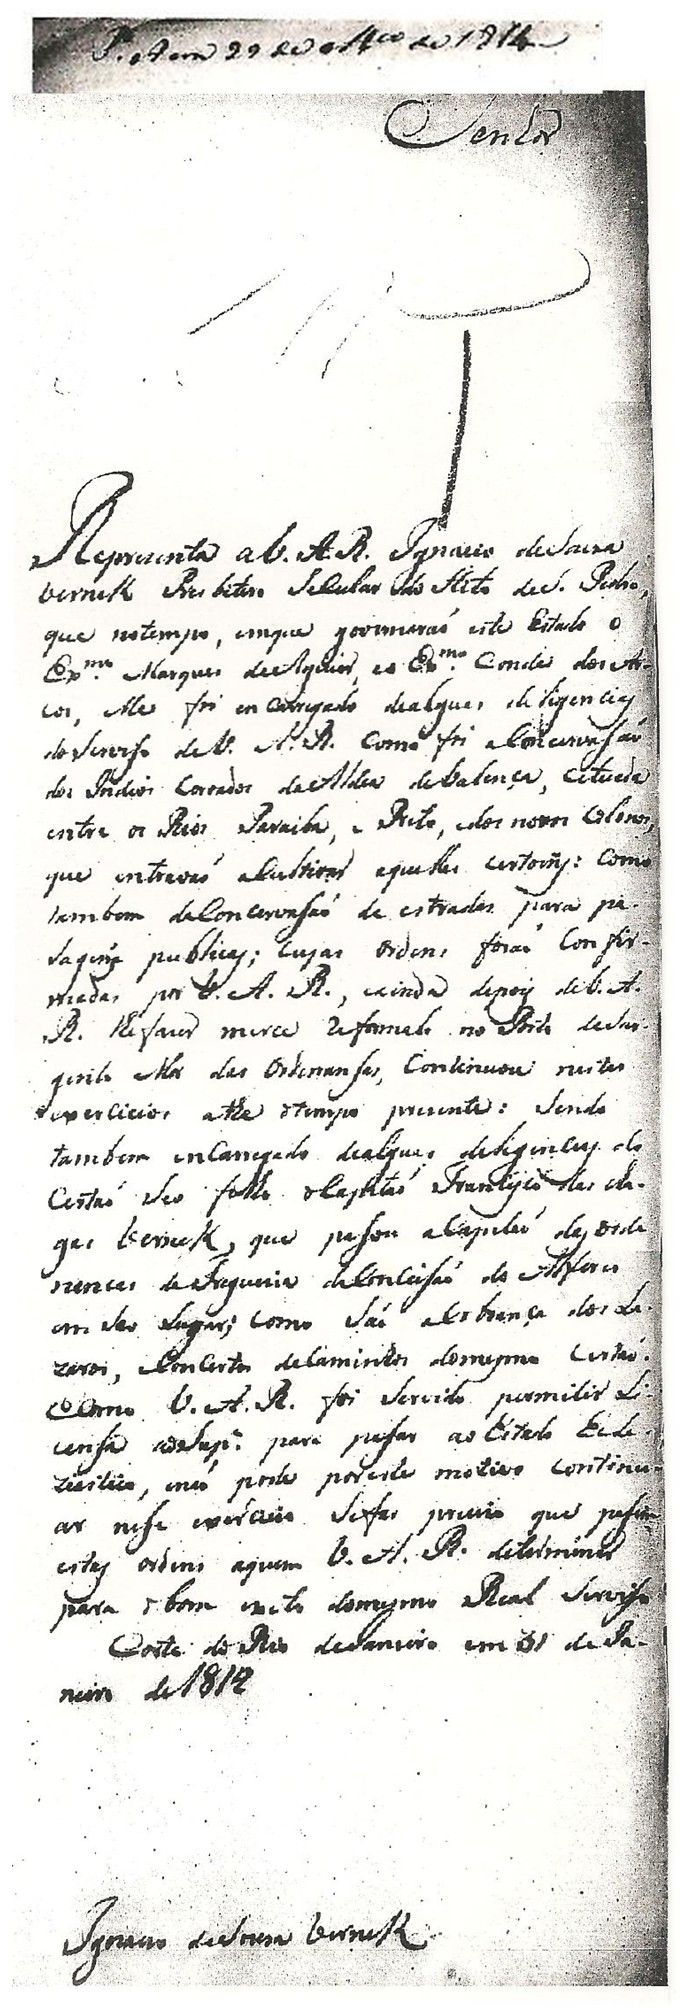 P. A em 29 de M.ço de 1814
Senhor
Representa a V. A. R. Ignacio deSouza
Vernek Presbitero Secular do Abito de S. Pedro,
que notempo, emque governaraó este Estado o
Ex.mo Marques deAguiar, eo Ex.mo Conde dos Ar-
cos, lhe foi encarregado dealgũas deligencias
doServiso de V. A. R. como foi aConcervasaó
dos Indios Coroados daAldea deValença, cituada
entre os Rios Paraiba, e Preto, edos novos Colonos,
que entravaó aCultivar aquelles certoiñs: Como
tambem deConcervasaó de estradas para pa-
sagiñs publicas; cujas ordens foraó Confir-
madas por V. A. R., eainda depois deV. A.
R. lhefazer merce Reformalo no Posto deSar-
gento Mor das Ordenansas, Continuou nestes
exercicios athe otempo prezente: Sendo
tambem enCarregado dealgũas deligencias do
Certaó Seo filho oCapitaó Francisco das cha-
gas Vernek, que pasou aCapitaó das orde
nancas daFreguezia daConceisaó do Alferes
em Seo Lugar; como Saó aCobrança dos La-
zaros, eConcertos deCaminhos domesmo Certaó.
EComo V. A. R. foi Servido permitir Li-
censa aoSup.e para pasar ao Estado Ecle-
ziastico, enaó pode poreste motivo continu-
ar nese exercicio Sefas precizo que pasem
estas ordens aquem V. A. R. determinar
para obom exito domesmo Real Serviso
Corte do Rio deJaneiro em 31 de Ja-
neiro de 1814
Ignacio deSouza Vernek